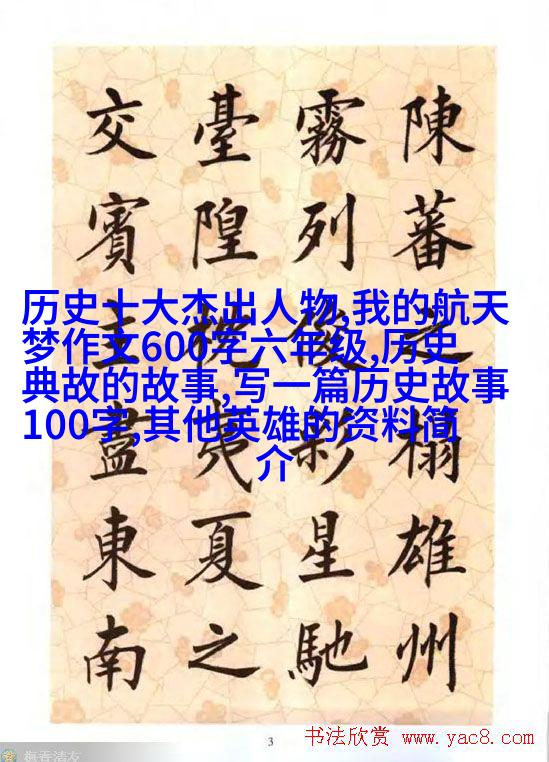 历史十大杰出人物,我的航天
梦作文600字六年级,历史
典故的故事,写一篇历史故事
100字,其他英雄的资料简
介
陳蕃之榻雄州
霧列俊彩星馳
臺隍枕夷夏之
交賓主盡東南
3
书法欣赏 www.yac8.com